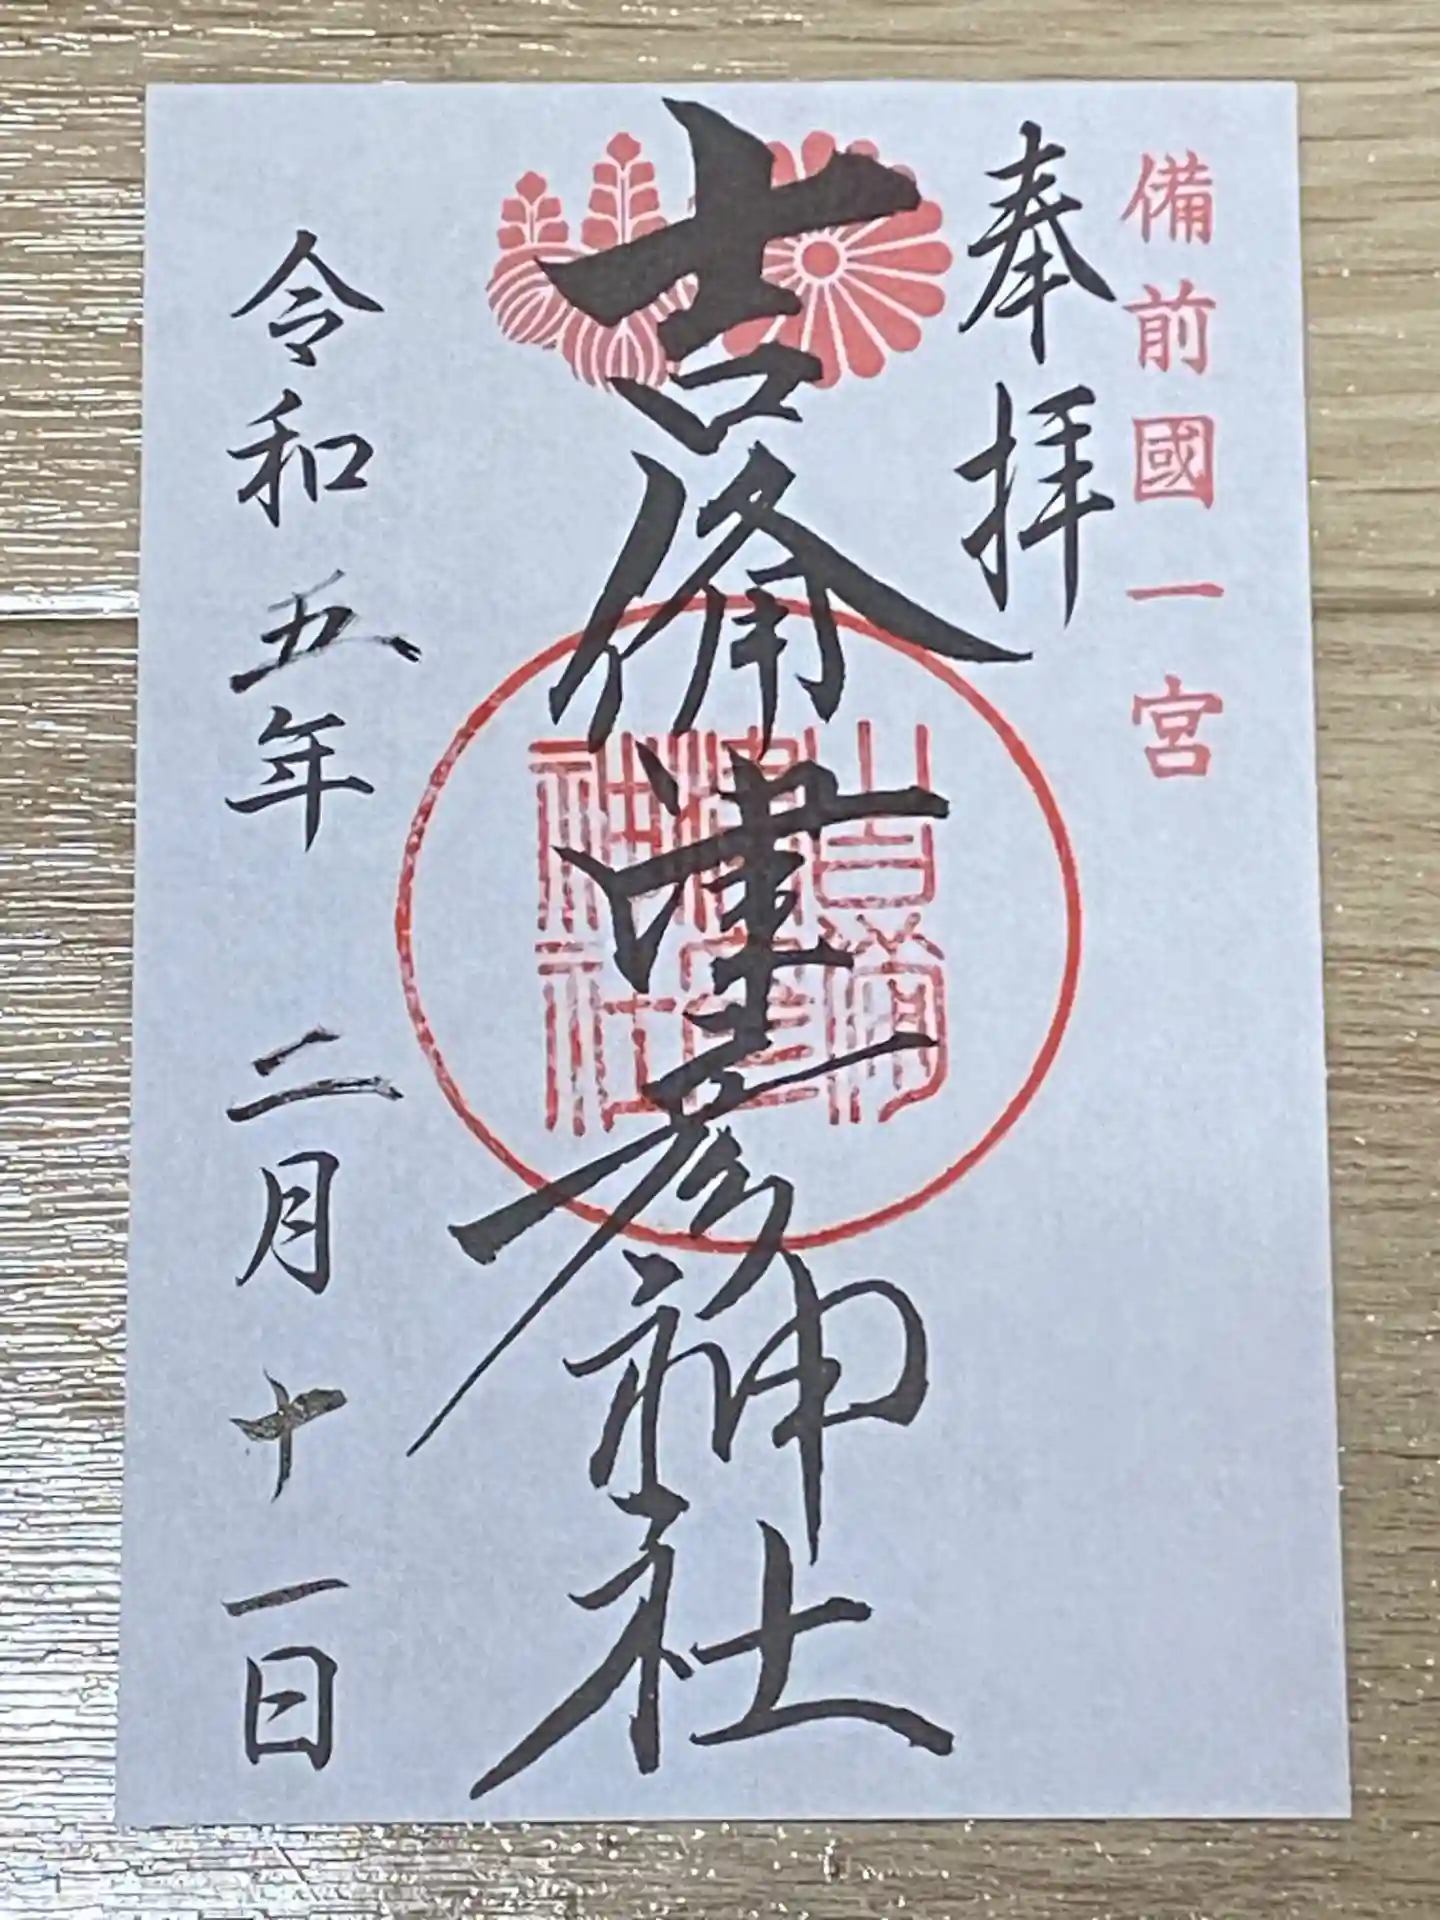 備前國一宮
奉拝
吉備津彦神社
吉備津宮神社
令和五年 二月十一日